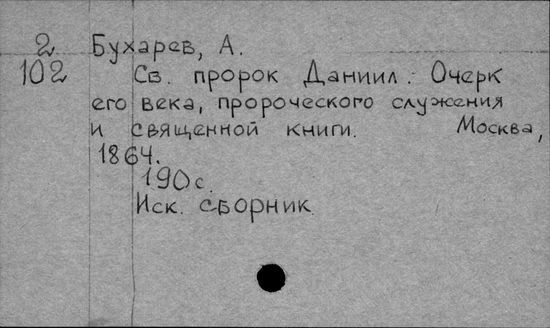 2 Бухарев, А.
102 Св. пророк Даниил. Очерк
его века, пророческого служения
и священной книги. Москва,
1864.
190 с.
Иск. сборник.